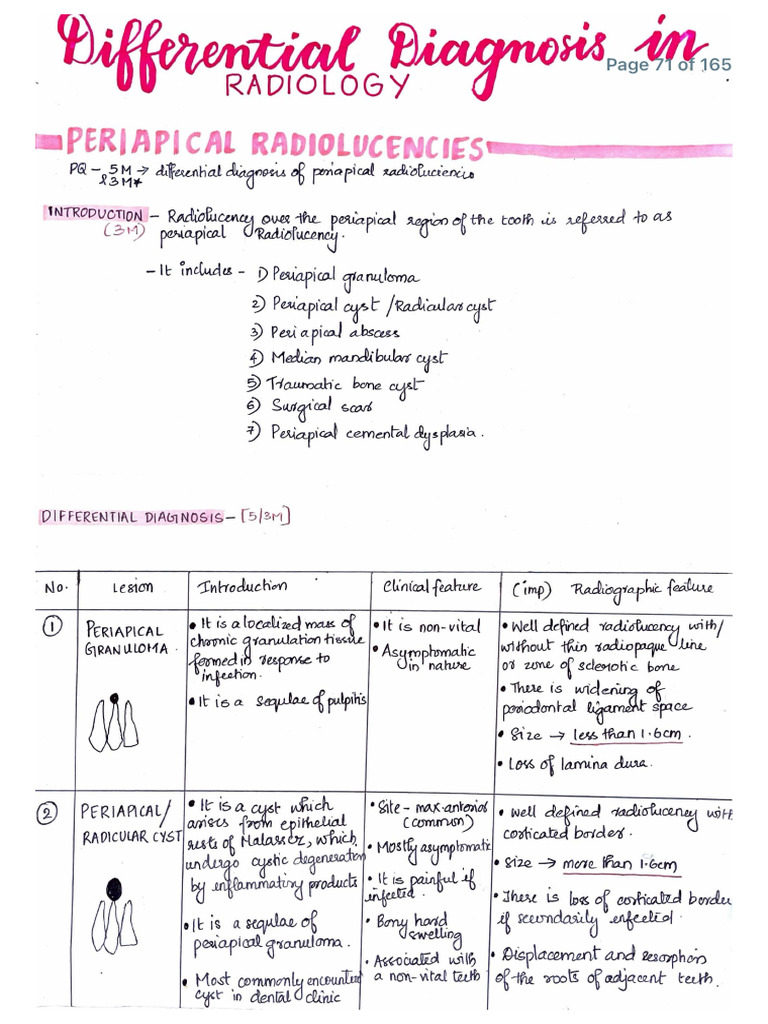 Differential Diagnosis in
Page 71 of 165
RADIOLOGY
PERIAPICAL RADIOLUCENCIES
PQ - 5M → differential diagnosis of periapical radioluciencies
& 3M*
INTRODUCTION - Radiolucency over the periapical region of the tooth is referred to as
(3M) periapical Radiolucency.
- It includes - 1) Periapical granuloma
2) Periapical cyst / Radicular cyst
3) Periapical abscess
4) Median mandibular cyst
5) Traumatic bone cyst
6) Surgical scar
7) Periapical cemental dysplasia.
DIFFERENTIAL DIAGNOSIS - [5/3M]
No. Lesion Introduction Clinical feature (imp) Radiographic feature
1 PERIAPICAL GRANULOMA.
• It is a localized mass of
chronic granulation tissue
formed in response to
infection.
• It is a sequlae of pulpitis
• It is non-vital
• Asymptomatic
in nature
• Well defined radiolucency with/
without thin radiopaque line
or zone of sclerotic bone
• There is widening of
periodontal ligament space
• Size → less than 1.6cm.
• Loss of lamina dura.
2 PERIAPICAL/
RADICULAR CYST
• It is a cyst which
arises from epithelial
rests of Malassez, which
undergo cystic degeneration
by inflammatiry products
• It is a sequlae of
periapical granuloma.
• Most commonly encountered
cyst in dental clinic
• Site - max. anterior
(common)
• Mostly asymptomatic
• It is painful if
infected.
• Bony hard
swelling
• Associated with
a non-vital teeth
• Well defined radiolucency with
corticated border.
• Size → more than 1.6cm
• There is loss of corticated border
if secondarily infected.
• Displacement and resorption
of the roots of adjacent teeth.